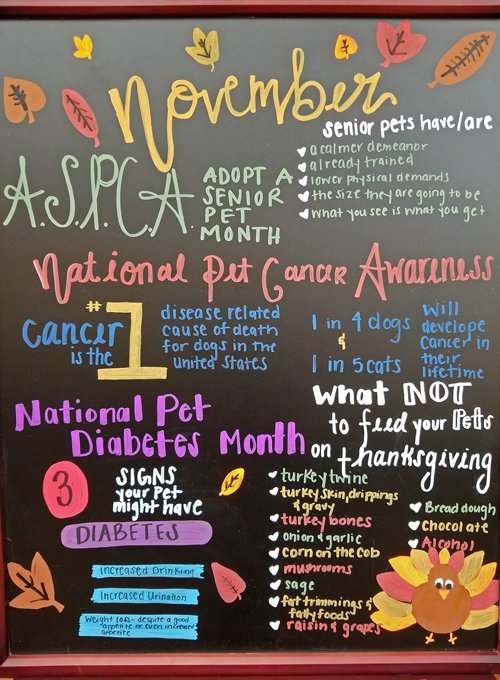 November
senior pets have/are
a calmer demeanor
already trained
lower physical demands
the size they are going to be
what you see is what you get
A.S.P.C.A.
ADOPT A
SENIOR
PET
MONTH
National Pet Cancer Awareness
cancer
is the
#1
disease related
cause of death
for dogs in the
united states
1 in 4 dogs
&
1 in 5 cats
Will
develope
cancer in
their
lifetime
National Pet
Diabetes Month
3
SIGNS
your Pet
might have
DIABETES
Increased Drinking
Increased Urination
Weight loss- despite a good
appetite or even increased
appetite
What NOT
to feed your Pets
on thanksgiving
turkey twine
turkey skin, drippings
& gravy
turkey bones
onion & garlic
corn on the cob
mushrooms
sage
fat trimmings &
fatty foods
raisin & grapes
Bread dough
chocolate
Alcohol